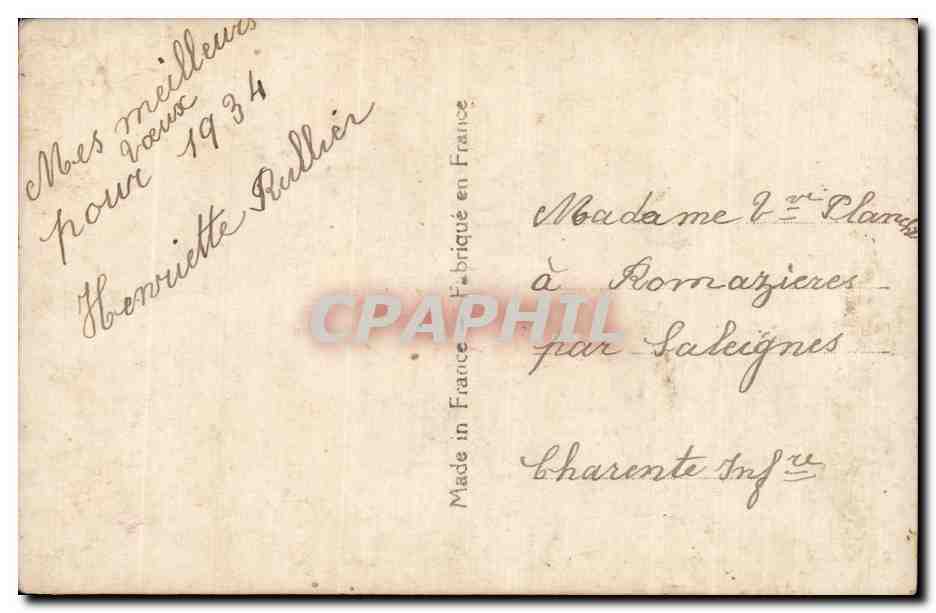 Mes meilleurs
vœux
pour 1934
Henriette Rullier
Made in France - Fabriqué en France
Madame Vve Planche
à Romazieres
par Saleignes
Charente Infre
CPAPHIL